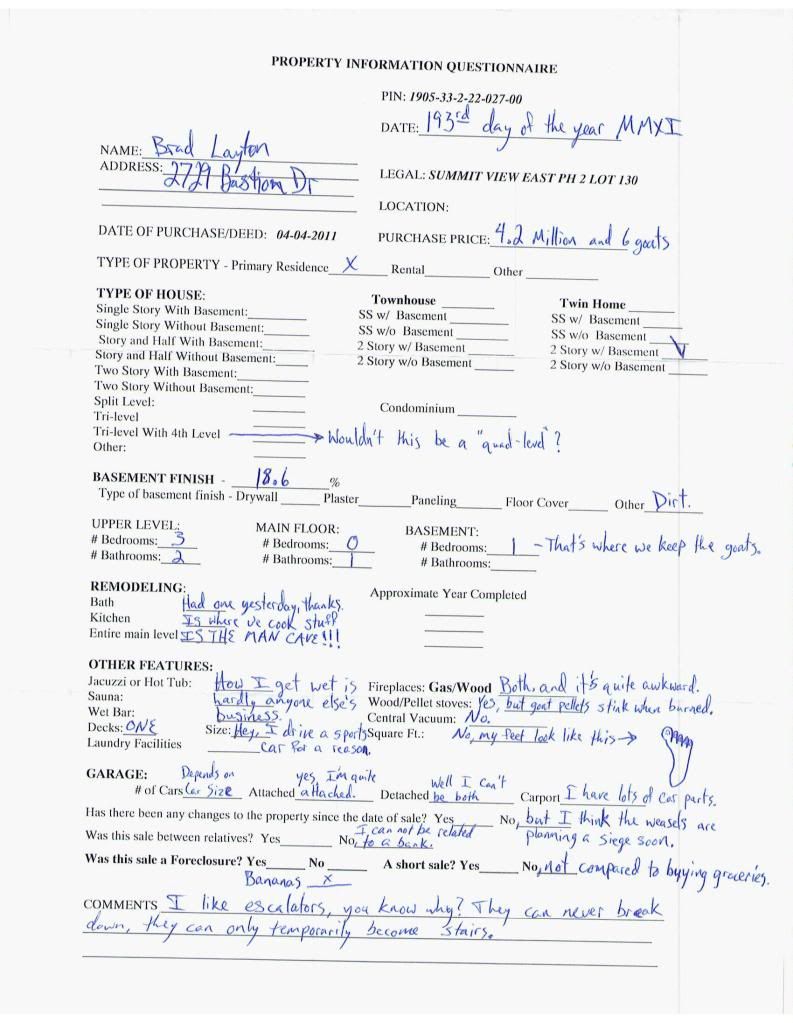 PROPERTY INFORMATION QUESTIONNAIRE
PIN: 1905-33-2-22-027-00
DATE: 193rd day of the year MMXI
NAME: Brad Layton
ADDRESS: 2729 Bastion Dr
LEGAL: SUMMIT VIEW EAST PH 2 LOT 130
LOCATION:
DATE OF PURCHASE/DEED: 04-04-2011 PURCHASE PRICE: 4.2 Million and 6 goats
TYPE OF PROPERTY - Primary Residence X Rental Other
TYPE OF HOUSE: Townhouse Twin Home
Single Story With Basement: SS w/ Basement SS w/ Basement
Single Story Without Basement: SS w/o Basement SS w/o Basement
Story and Half With Basement: 2 Story w/ Basement 2 Story w/ Basement V
Story and Half Without Basement: 2 Story w/o Basement 2 Story w/o Basement
Two Story With Basement:
Two Story Without Basement:
Split Level: Condominium
Tri-level
Tri-level With 4th Level → Wouldn't this be a "quad-level"?
Other:
BASEMENT FINISH - 18.6 %
Type of basement finish - Drywall Plaster Paneling Floor Cover Other Dirt.
UPPER LEVEL: MAIN FLOOR: BASEMENT:
# Bedrooms: 3 # Bedrooms: 0 # Bedrooms: 1 - That's where we keep the goats.
# Bathrooms: 2 # Bathrooms: 1 # Bathrooms:
REMODELING: Approximate Year Completed
Bath Had one yesterday, thanks.
Kitchen Is where we cook stuff
Entire main level IS THE MAN CAVE!!!
OTHER FEATURES:
Jacuzzi or Hot Tub: How I get wet is Fireplaces: Gas/Wood Both, and it's quite awkward.
Sauna: hardly anyone else's Wood/Pellet stoves: Yes, but goat pellets stink when burned.
Wet Bar: business. Central Vacuum: No.
Decks: ONE Size: Hey, I drive a sports Square Ft.: No, my feet look like this →
Laundry Facilities car for a reason.
GARAGE: Depends on yes, I'm quite Well I can't
# of Cars Car Size Attached attached. Detached be both Carport I have lots of car parts.
Has there been any changes to the property since the date of sale? Yes No, but I think the weasels are
planning a siege soon.
Was this sale between relatives? Yes No, I can not be related
to a bank.
Was this sale a Foreclosure? Yes No A short sale? Yes No, not compared to buying groceries.
Bananas x
COMMENTS I like escalators, you know why? They can never break
down, they can only temporarily become stairs.